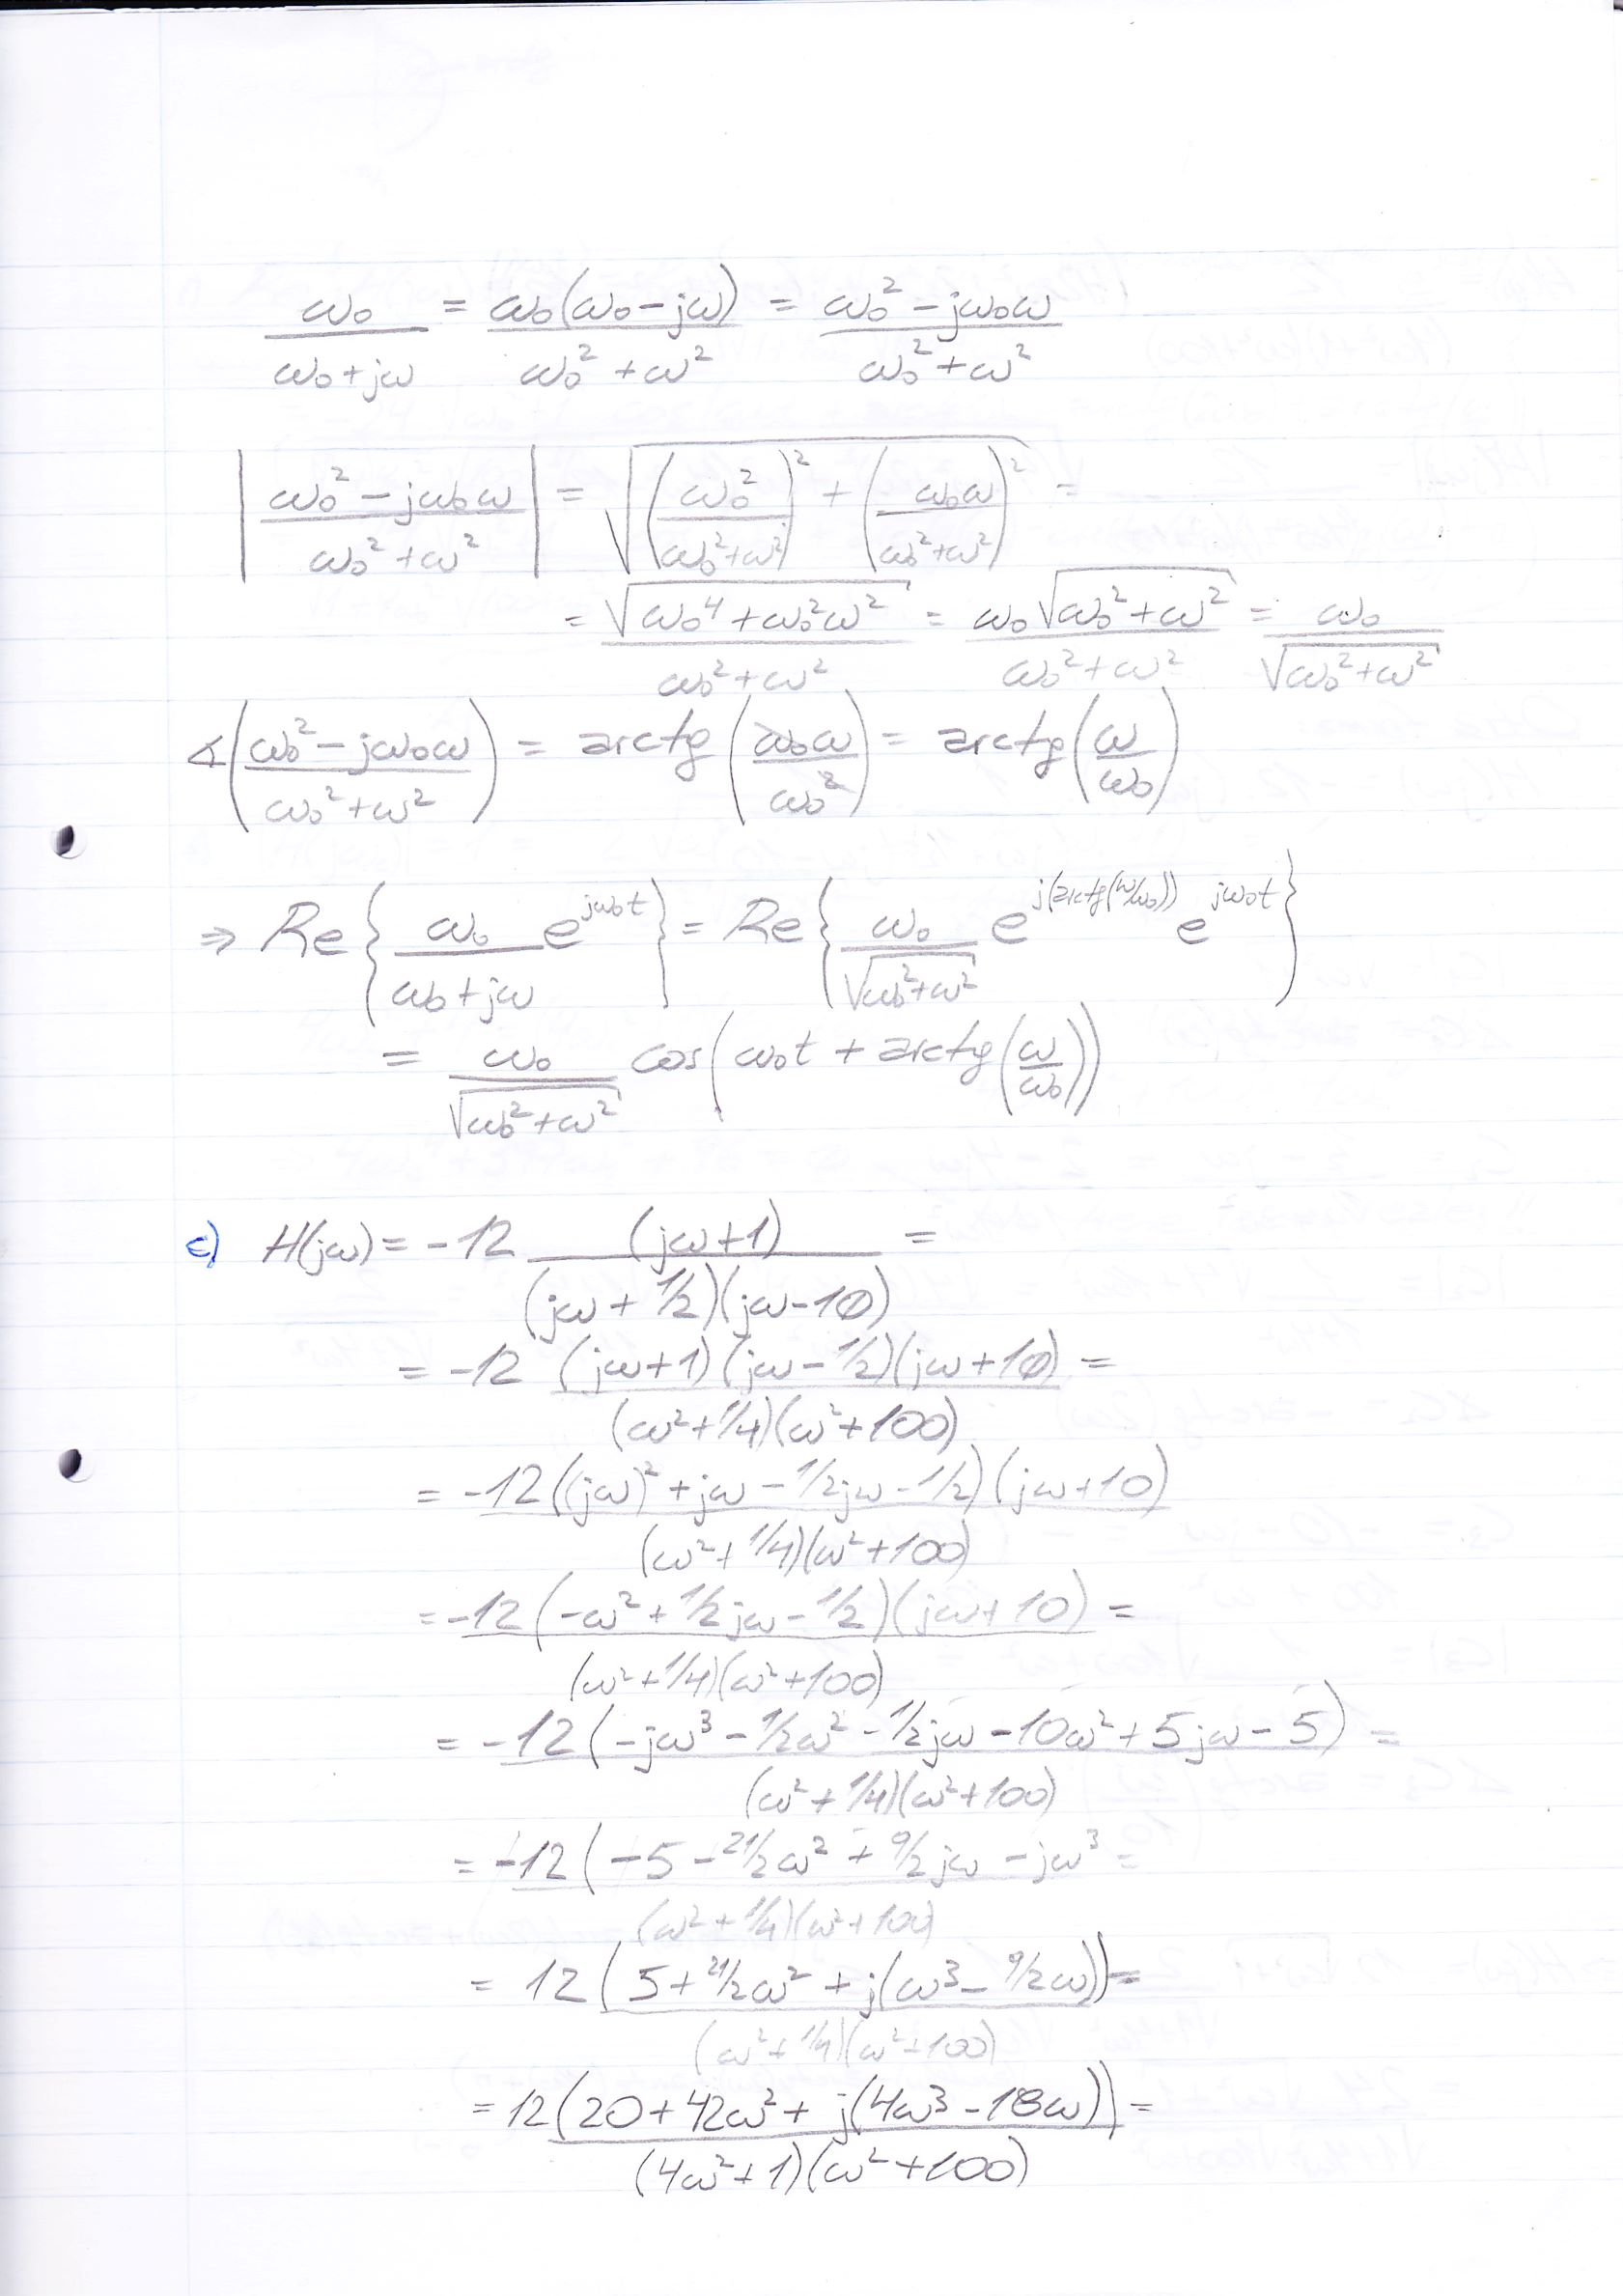 ω₀/(ω₀+jω) = ω₀(ω₀-jω)/(ω₀²+ω²) = (ω₀²-jω₀ω)/(ω₀²+ω²)
|(ω₀²-jω₀ω)/(ω₀²+ω²)| = √((ω₀²/(ω₀²+ω²))² + (ω₀ω/(ω₀²+ω²))²) =
= √(ω₀⁴+ω₀²ω²)/(ω₀²+ω²) = ω₀√(ω₀²+ω²)/(ω₀²+ω²) = ω₀/√(ω₀²+ω²)
∢((ω₀²-jω₀ω)/(ω₀²+ω²)) = arctg(ω₀ω/ω₀²) = arctg(ω/ω₀)
⇒ Re{ω₀/(ω₀+jω) e^(jω₀t)} = Re{ω₀/√(ω₀²+ω²) e^(j(arctg(ω/ω₀))) e^(jω₀t)}
= ω₀/√(ω₀²+ω²) cos(ω₀t + arctg(ω/ω₀))
c) H(jω) = -12 (jω+1)/((jω+1/2)(jω-10)) =
= -12 (jω+1)(jω-1/2)(jω+10)/((ω²+1/4)(ω²+100)) =
= -12((jω)²+jω-1/2jω-1/2)(jω+10)/((ω²+1/4)(ω²+100))
= -12(-ω²+1/2jω-1/2)(jω+10)/((ω²+1/4)(ω²+100)) =
= -12(-jω³-1/2ω²-1/2jω-10ω²+5jω-5)/((ω²+1/4)(ω²+100)) =
= -12(-5-21/2ω²+9/2jω-jω³/((ω²+1/4)(ω²+100)) =
= 12(5+21/2ω²+j(ω³-9/2ω))/((ω²+1/4)(ω²+100)) =
= 12(20+42ω²+j(4ω³-18ω))/((4ω²+1)(ω²+100)) =